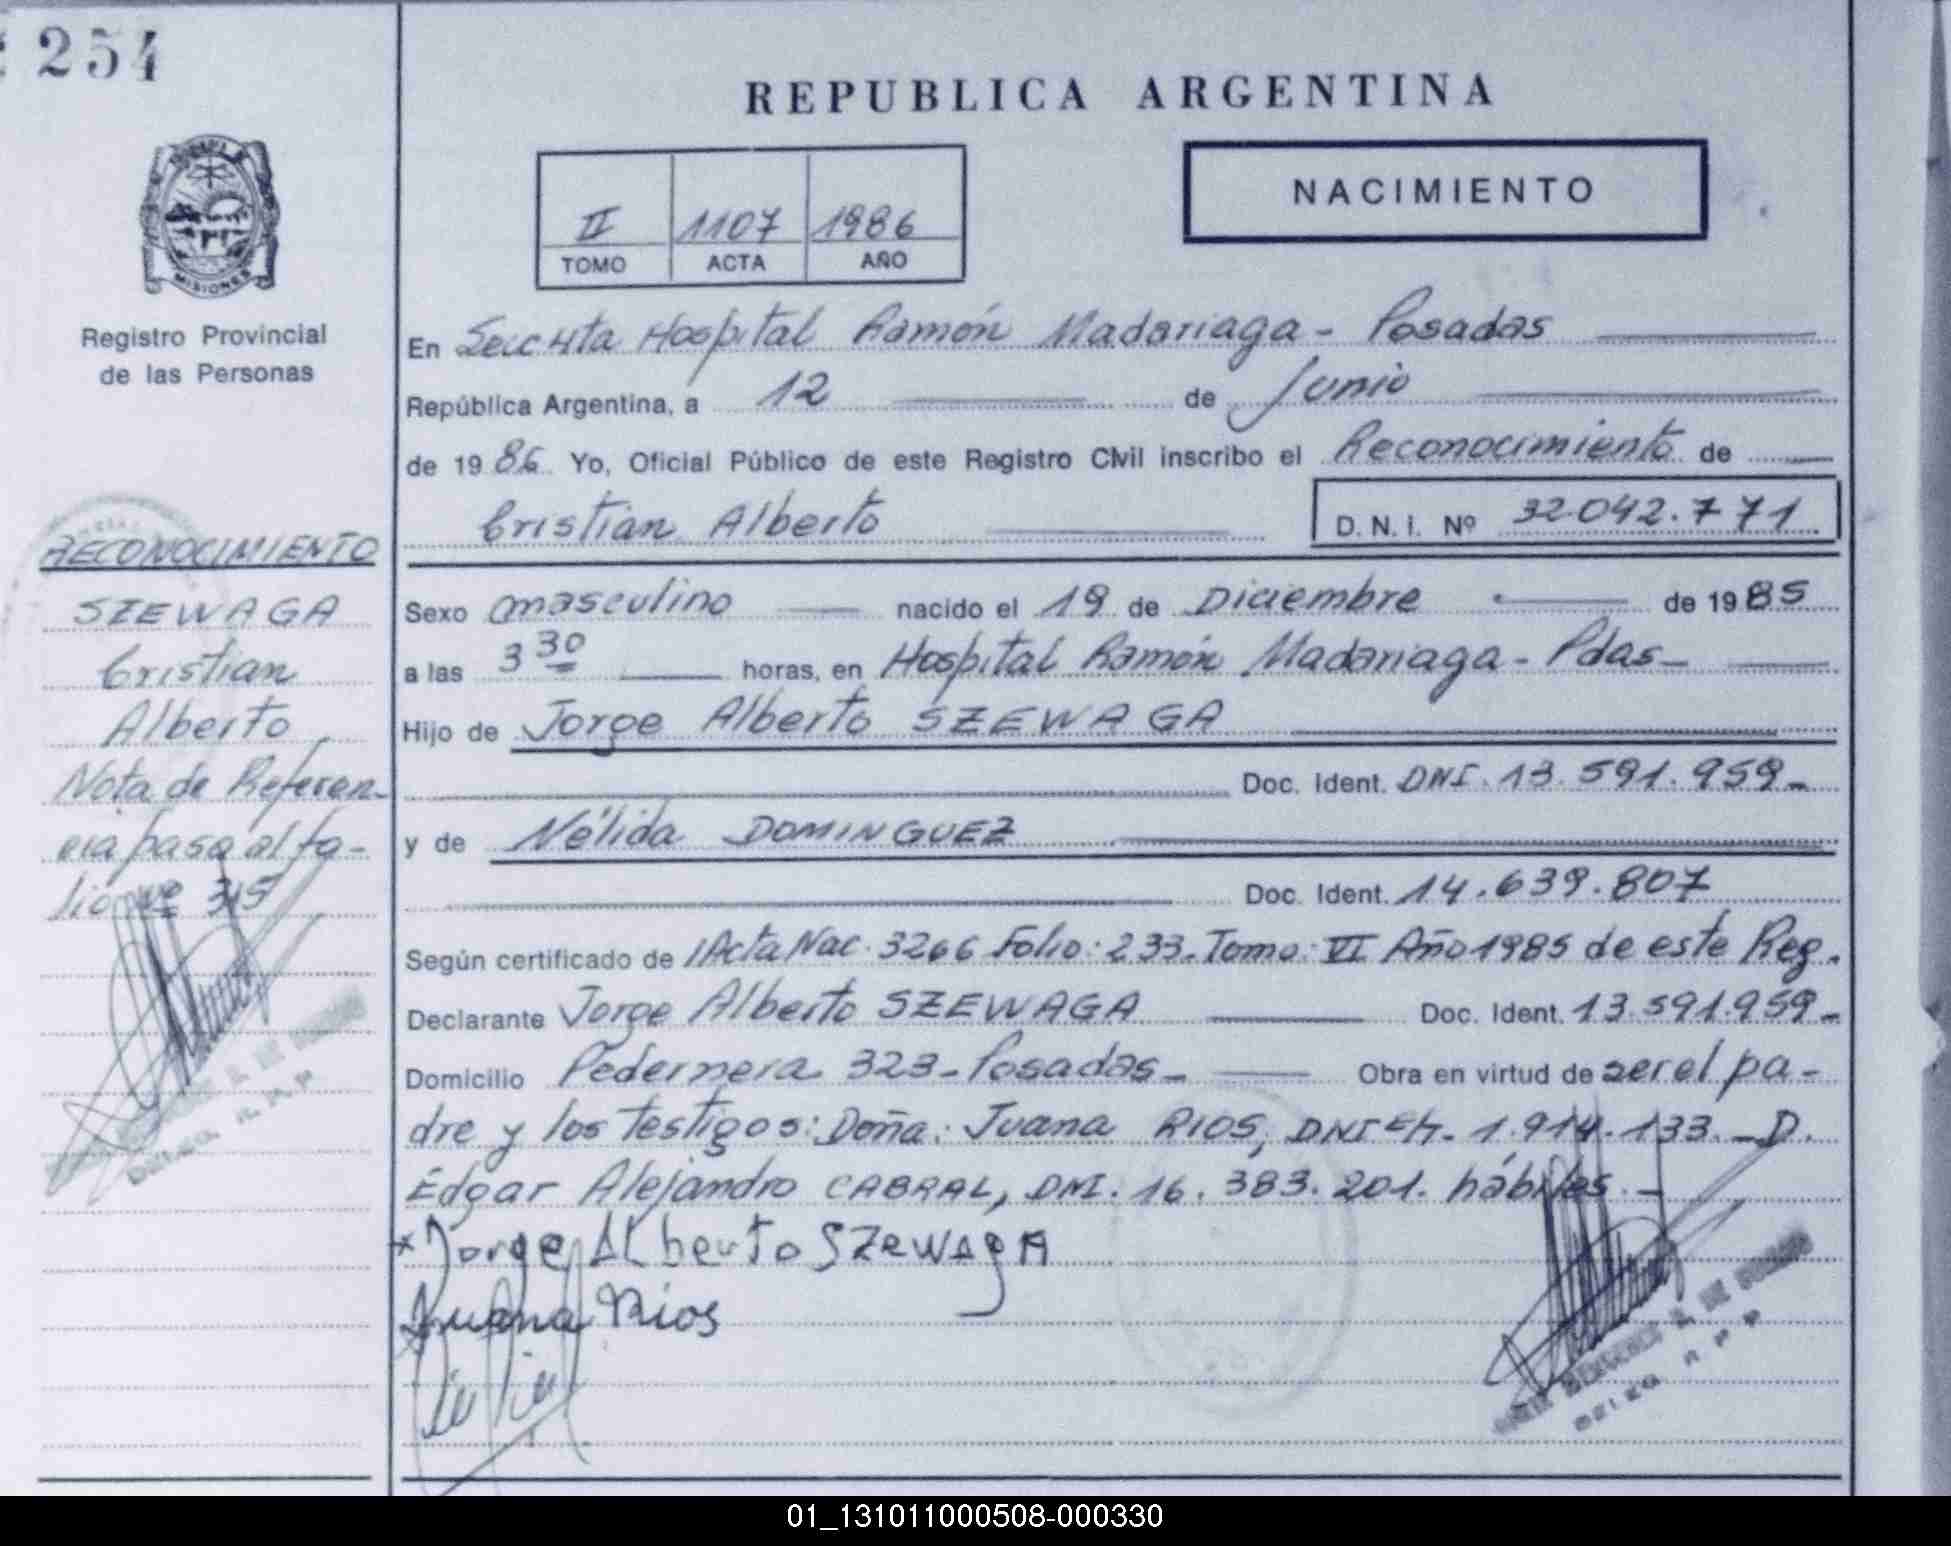 254
REPUBLICA ARGENTINA
NACIMIENTO
II 1107 1986
TOMO ACTA AÑO
MISIONES
Registro Provincial
de las Personas
En Secc 4ta Hospital Ramón Madariaga - Posadas
República Argentina, a 12 de Junio
de 1986 Yo, Oficial Público de este Registro Civil inscribo el Reconocimiento de
Cristian Alberto D.N.I. Nº 32.042.771
RECONOCIMIENTO
SZEWAGA
Cristian
Alberto
Nota de Referen-
cia pasa al fo-
lio nº 315
Sexo masculino nacido el 19 de Diciembre de 1985
a las 3 30 horas, en Hospital Ramón Madariaga - Pdas -
Hijo de Jorge Alberto SZEWAGA
Doc. Ident. DNI. 13.591.959 -
y de Nélida DOMINGUEZ
Doc. Ident. 14.639.807
Según certificado de Acta Nac. 3266 Folio: 233 - Tomo: VI Año 1985 de este Reg.
Declarante Jorge Alberto SZEWAGA Doc. Ident. 13.591.959 -
Domicilio Pedernera 323 - Posadas - Obra en virtud de ser el pa-
dre y los testigos: Doña: Juana RIOS, DNI 1.914.133. - D.
Edgar Alejandro CABRAL, DNI. 16.383.201. hábiles. -
Jorge Alberto SZEWAGA
Juana Rios
01_131011000508-000330